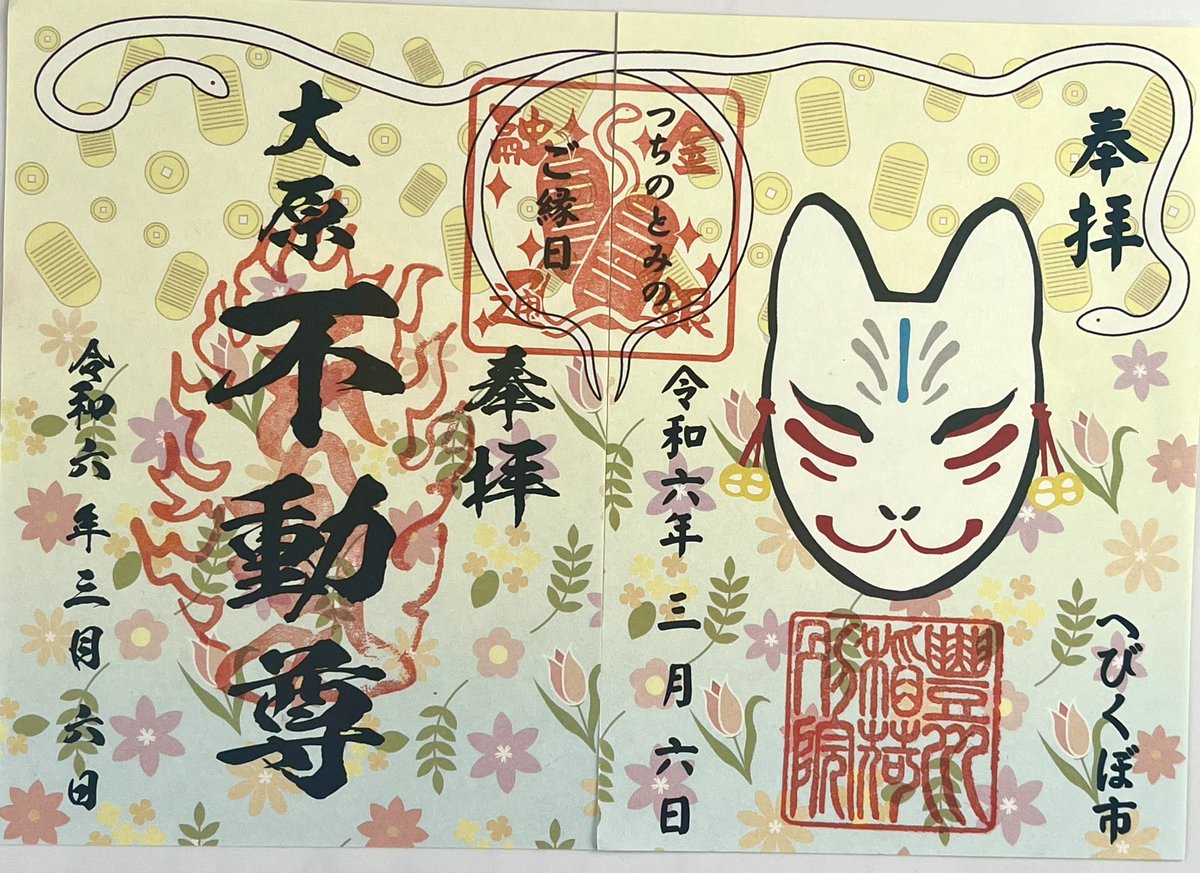 奉拝
へびくぼ市
令和六年三月六日
つちのとみの
ご縁日
金銀
融通
豐川
稲荷
別院
奉拝
大原不動尊
令和六年三月六日